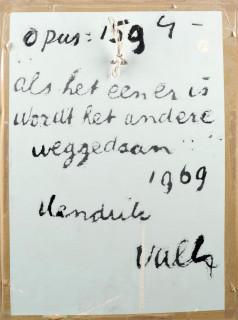 Opus: 1594 -
"als het een er is
wordt het andere
weggedaan"
1969
Hendrik
Valk